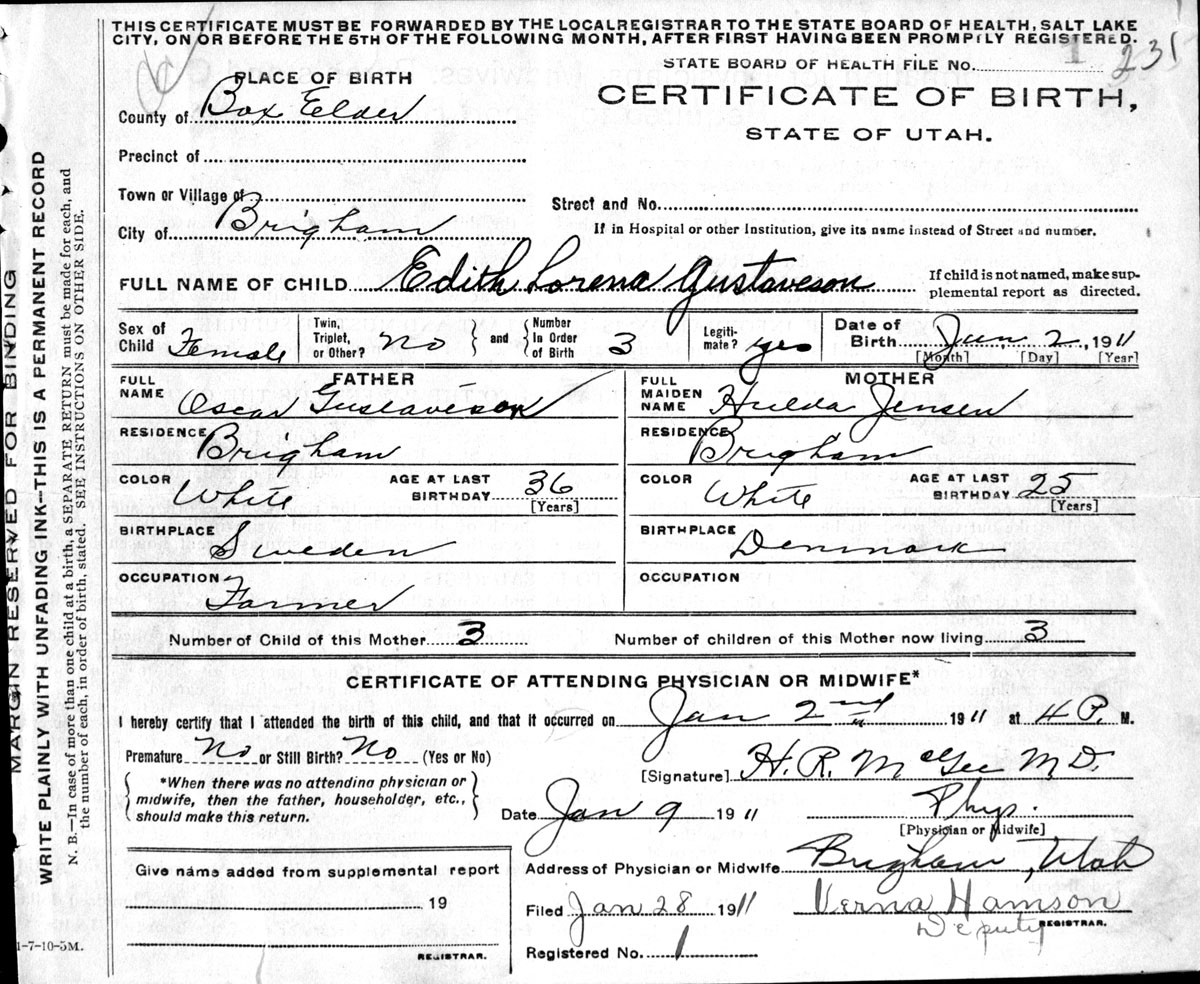 THIS CERTIFICATE MUST BE FORWARDED BY THE LOCAL REGISTRAR TO THE STATE BOARD OF HEALTH, SALT LAKE
CITY, ON OR BEFORE THE 5TH OF THE FOLLOWING MONTH, AFTER FIRST HAVING BEEN PROMPTLY REGISTERED.
STATE BOARD OF HEALTH FILE No. 1 231
PLACE OF BIRTH
CERTIFICATE OF BIRTH,
County of Box Elder
STATE OF UTAH.
Precinct of
Town or Village of
Street and No.
City of Brigham
If in Hospital or other Institution, give its name instead of Street and number.
FULL NAME OF CHILD Edith Lorena Gustaveson
If child is not named, make sup-
plemental report as directed.
Sex of Child Female
Twin, Triplet, or Other? No
and
Number In Order of Birth 3
Legiti-mate? yes
Date of Birth Jan 2, 1911
[Month] [Day] [Year]
FATHER
FULL NAME Oscar Gustaveson
RESIDENCE Brigham
COLOR White
AGE AT LAST BIRTHDAY 36
[Years]
BIRTHPLACE Sweden
OCCUPATION Farmer
MOTHER
FULL MAIDEN NAME Hulda Jensen
RESIDENCE Brigham
COLOR White
AGE AT LAST BIRTHDAY 25
[Years]
BIRTHPLACE Denmark
OCCUPATION
Number of Child of this Mother 3
Number of children of this Mother now living 3
CERTIFICATE OF ATTENDING PHYSICIAN OR MIDWIFE*
I hereby certify that I attended the birth of this child, and that it occurred on Jan 2nd 1911 at 4 P. M.
Premature No or Still Birth? No (Yes or No)
*When there was no attending physician or
midwife, then the father, householder, etc.,
should make this return.
[Signature] H. R. McGee M.D.
Date Jan 9 1911
Phys.
[Physician or Midwife]
Address of Physician or Midwife Brigham, Utah
Give name added from supplemental report
19
REGISTRAR.
Filed Jan 28 1911
Verna Hamson
Deputy REGISTRAR.
Registered No. 1
1-7-10-5M.
MARGIN RESERVED FOR BINDING
WRITE PLAINLY WITH UNFADING INK--THIS IS A PERMANENT RECORD
N. B.—In case of more than one child at a birth, a SEPARATE RETURN must be made for each, and
the number of each, in order of birth, stated. SEE INSTRUCTIONS ON OTHER SIDE.